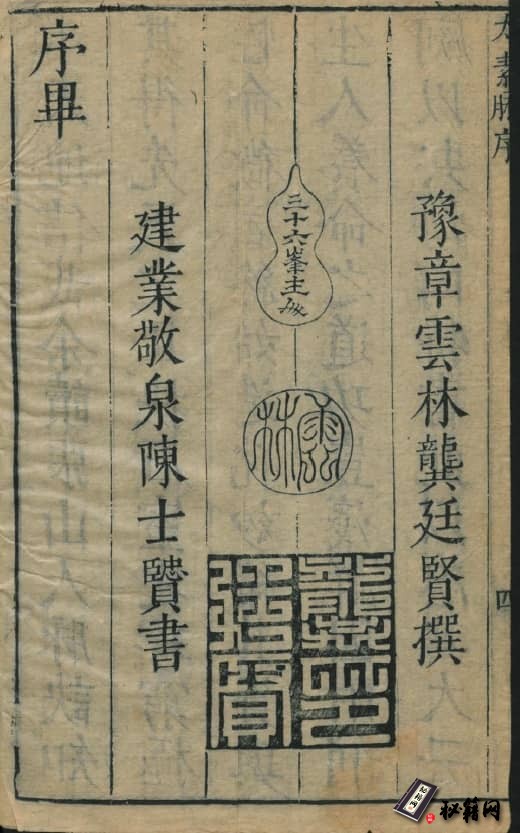 太素脉序
四
豫章雲林龔廷賢撰
三十六峯主
雲林
龔印廷賢
建業敬泉陳士書
序畢
秘籍网